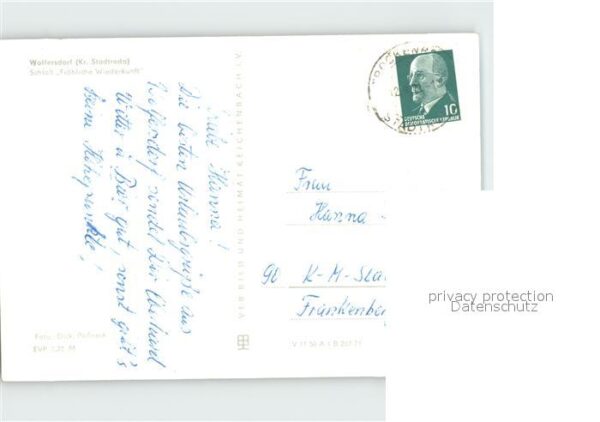 Wolfersdorf (Kr. Stadtroda)
Schloß „Fröhliche Wiederkunft"
Hanna!
Die besten Urlaubsgrüße aus
Wolfersdorf sendet Dir Eberhard
Wetter u. Bier gut, sonst gibt's
keine Höhepunkte!
Foto: Dick, Pößneck
EVP
VEB BILD UND HEIMAT REICHENBACH i. V.
DEUTSCHE
DEMOKRATISCHE REPUBLIK
10
Frau
Hanna
90 K-M-Sta
Frankenberg
privacy protection
Datenschutz